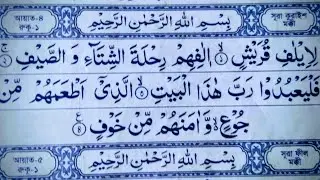 আয়াত-৪ রুকু-১ بِسْمِ اللّٰهِ الرَّحْمٰنِ الرَّحِيْمِ সূরা কুরাইশ মক্কী
لِاِيْلٰفِ قُرَيْشٍ ۝۱ اٖلٰفِهِمْ رِحْلَةَ الشِّتَآءِ وَ الصَّيْفِ ۝
فَلْيَعْبُدُوْا رَبَّ هٰذَا الْبَيْتِ ۝ الَّذِىْٓ اَطْعَمَهُمْ مِّنْ
جُوْعٍ ۙ وَّ اٰمَنَهُمْ مِّنْ خَوْفٍ ۝
আয়াত-৫ রুকু-১ بِسْمِ اللّٰهِ الرَّحْمٰنِ الرَّحِيْمِ সূরা ফীল মক্কী